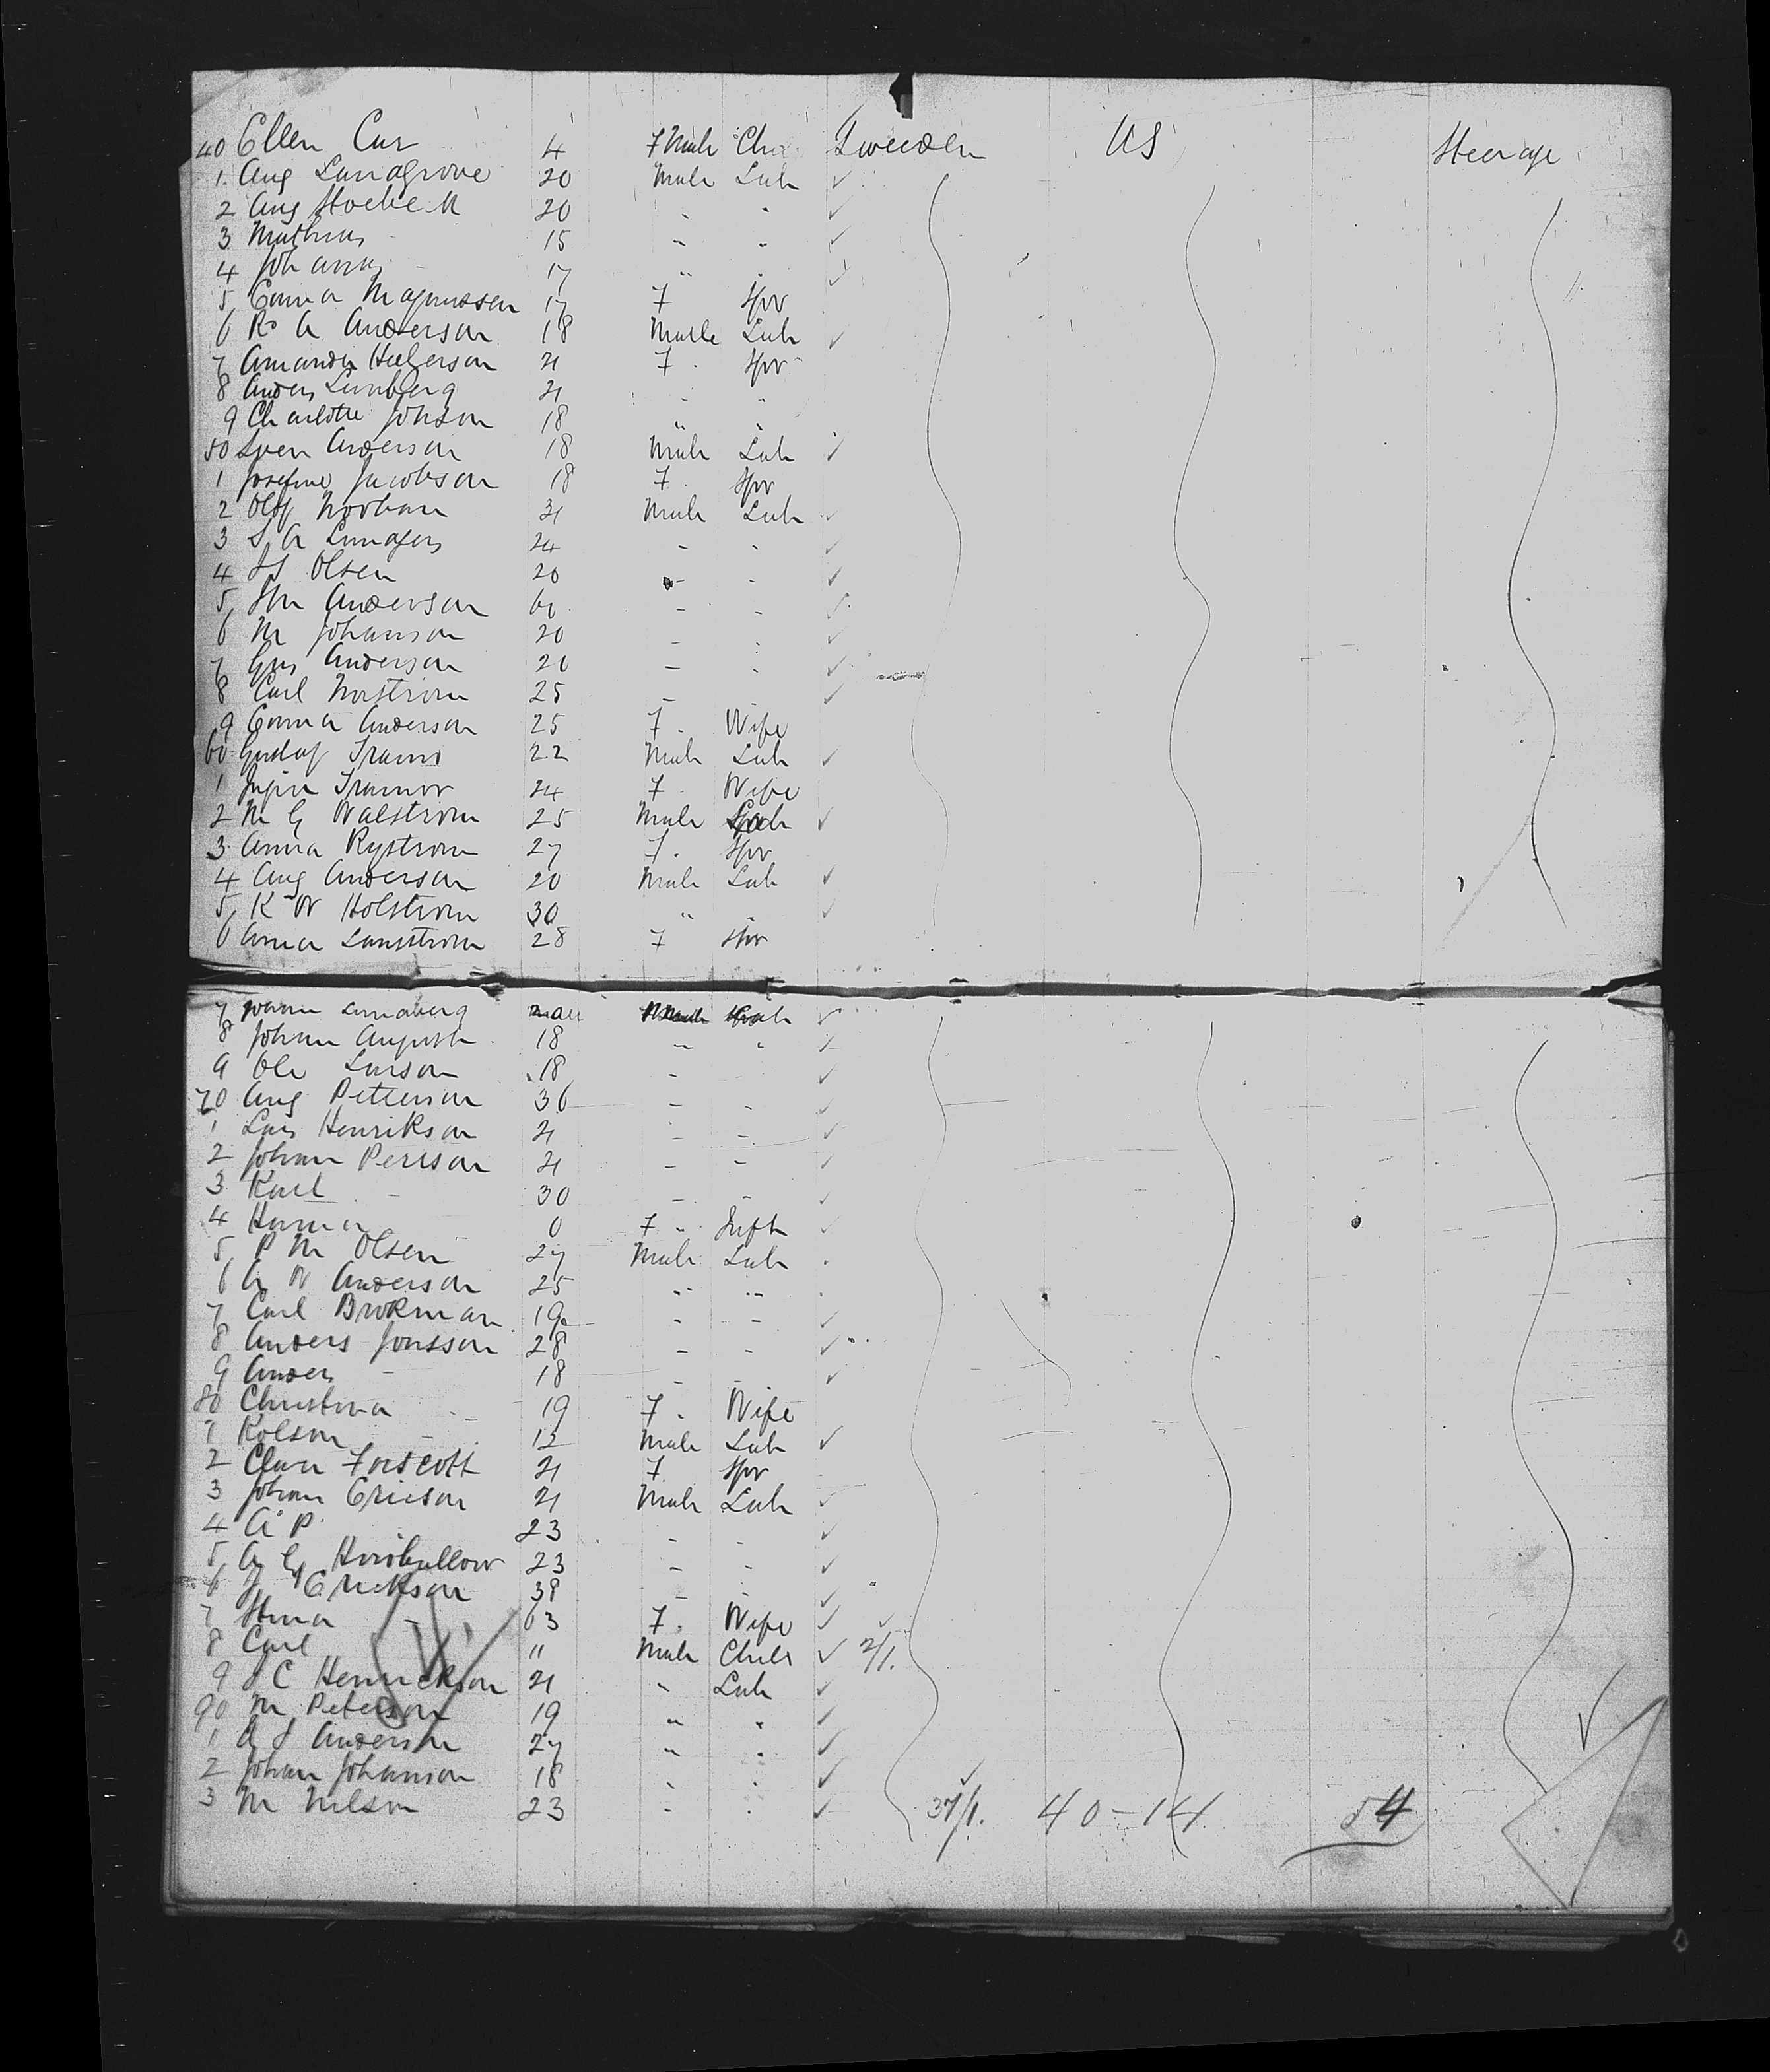 40 Ellen Car 4 F Male Sweeden US Steerage
1 Aug Landgrove 20 Male Lab
2 Aug 20 " "
3 Mathias - 15 " "
4 17 " "
5 Emma Magnussen 17 F Spr
6 K A Anderson 18 Male Lab
7 Amanda 21 F Spr
8 Anders Lunberg 21 " "
9 Charlotte Jonson 18 " "
50 Sven Anderson 18 Male Lab
1 Josefine Jacobson 18 F Spr
2 Olof Norman 31 Male Lab
3 S A 24 - -
4 Olsen 20 - -
5 Anderson - -
6 M Johanson 20 - -
7 Gus Anderson 20 - -
8 Carl Norstrom 25 - -
9 Emma Anderson 25 F Wife
60 Gustaf 22 Male Lab
1 24 F Wife
2 M G Walstrom 25 Male Lab
3 Anna Rystrom 27 F Spr
4 Aug Anderson 20 Male Lab
5 K W Holstrom 30 " "
6 Anna 28 F Spr
7 Lundberg
8 Johan August 18 " "
9 Ole Larson 18 - -
70 Aug Petterson 36 - -
1 Lars Henrikson 21 - -
2 Johan Person 21 - -
3 Karl - 30 - -
4 0 F Inft
5 P M Olsen 27 Male Lab
6 A W Anderson 25 " "
7 Carl Brokman 19 - -
8 Anders Jonsson 28 - -
9 Anders - 18 - -
80 Christina - 19 F Wife
1 - 12 Male Lab
2 Clara Forscott 21 F Spr
3 Johan Ericson 21 Male Lab
4 A P 23 - -
5 A G 23 - -
6 Erickson 38 - -
7 Stina - 63 F Wife
8 Carl 11 Male Child 2/1.
9 J C Henrickson 21 " Lab
90 M Peterson 19 " "
1 A J Anderson 27 " "
2 Johan Johanson 18 " "
3 M Nilson 23 " " 37/1. 40-14 54